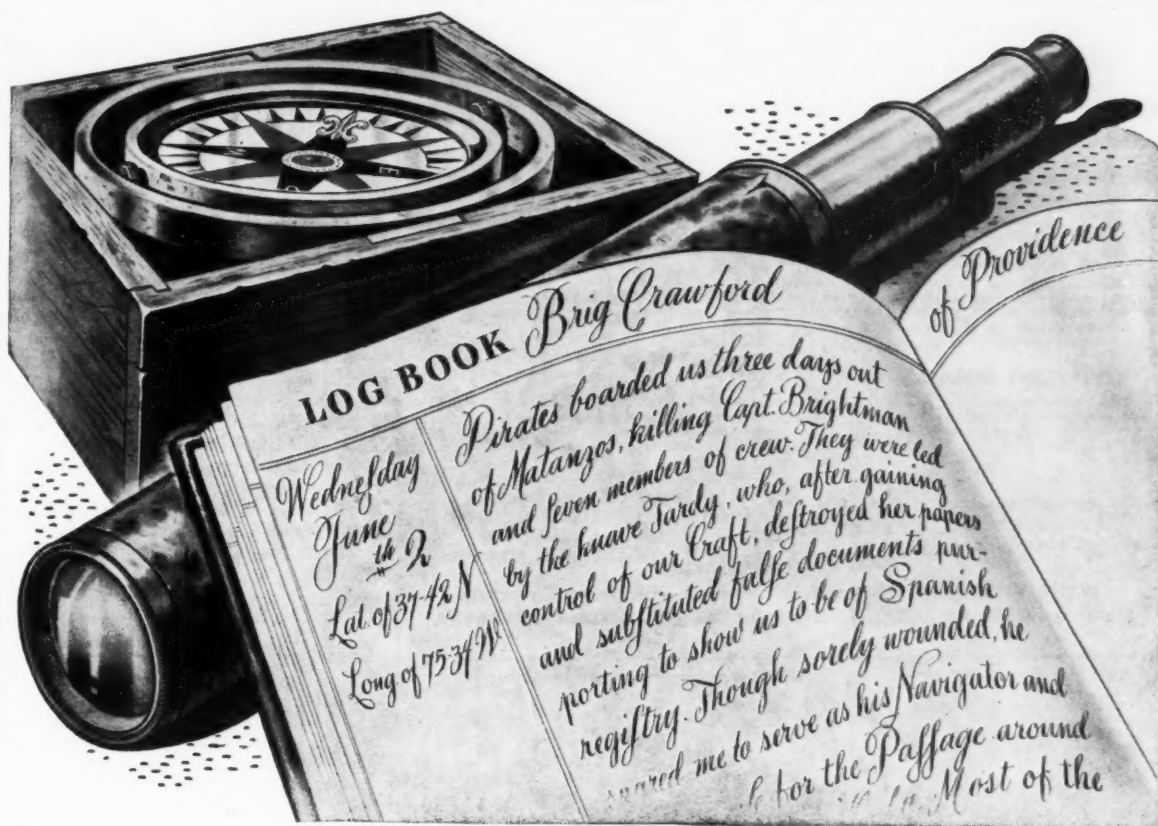 LOG BOOK Brig Crawford
of Providence
Wedneſday
June
th 2
Lat. of 37-42 N
Long of 75-34 W
Pirates boarded us three days out
of Matanzos, killing Capt. Brightman
and ſeven members of crew. They were led
by the knave Tardy, who, after gaining
control of our Craft, deſtroyed her papers
and subſtituted falſe documents pur-
porting to show us to be of Spanish
regiſtry. Though sorely wounded, he
me to serve as his Navigator and
for the Paſſage around
Most of the
E